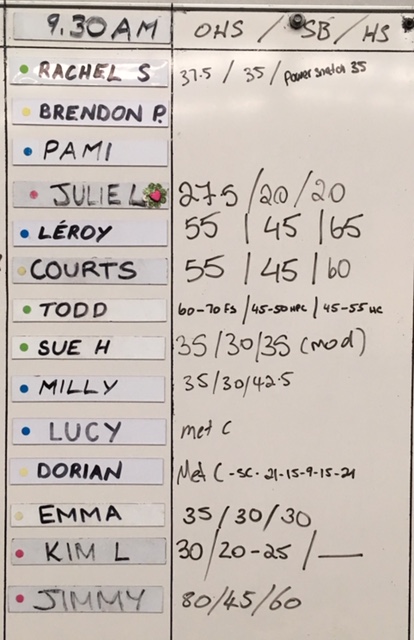 9.30AM OHS / SB / HS
RACHEL S 37.5 / 35 / Power snatch 35
BRENDON P.
PAMI
JULIE L 27.5 / 20 / 20
LÉROY 55 | 45 | 65
COURTS 55 | 45 | 60
TODD 60-70 FS | 45-50 HPC | 45-55 HC
SUE H 35/30/35 (mod)
MILLY 35/30/42.5
LUCY met C
DORIAN Met C - SC - 21-15-9-15-21
EMMA 35/30/30
KIM L 30/20-25 / —
JIMMY 80/45/60